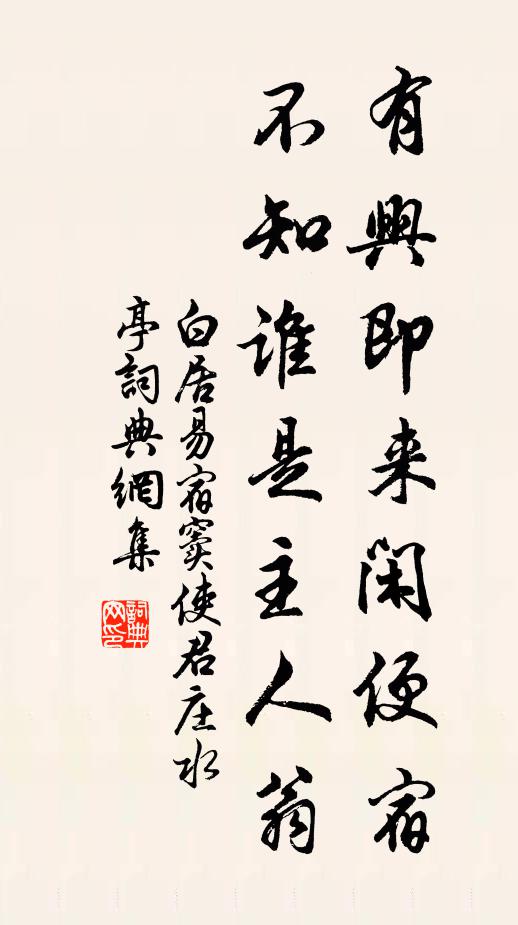 有興即来閑便宿
不知誰是主人翁
白居易宿竇使君庄水
亭詞典網集
詞典
网印